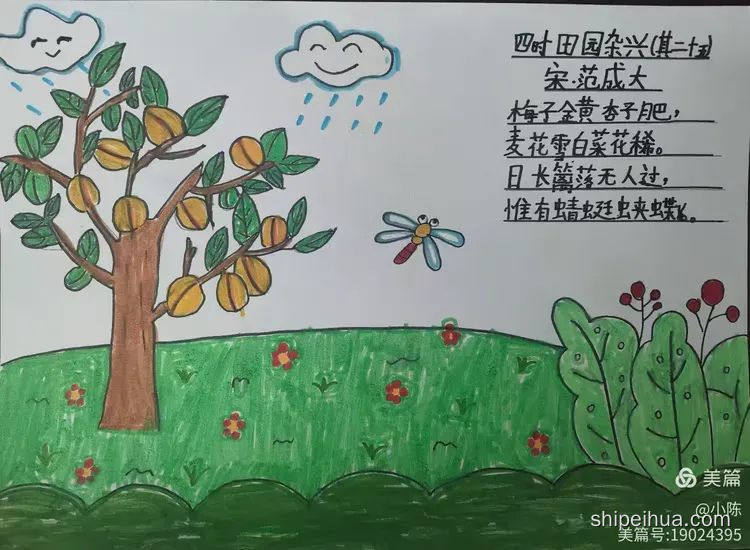 四时田园杂兴(其二十五)
宋·范成大
梅子金黄杏子肥,
麦花雪白菜花稀。
日长篱落无人过,
惟有蜻蜓虫夹蝶飞。
美篇
@小陈
shipeihua.com
美篇号:19024395